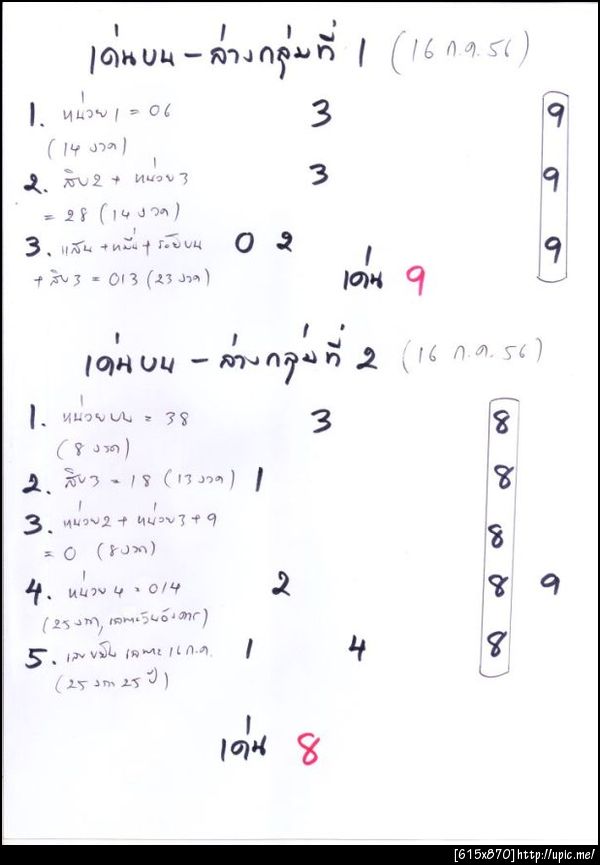 เด่นบน - ล่างกลุ่มที่ 1 (16 ก.ค. 56)
1. หน่วย 1 = 06 3 9
(14 งวด)
2. สิบ2 + หน่วย3 3 9
= 28 (14 งวด)
3. แสน + หมื่น + ร้อยบน 0 2 9
+ สิบ3 = 013 (23 งวด) เด่น 9
เด่นบน - ล่างกลุ่มที่ 2 (16 ก.ค. 56)
1. หน่วยบน = 38 3 8
(8 งวด)
2. สิบ3 = 18 (13 งวด) 1 8
3. หน่วย2 + หน่วย3 + 9 8
= 0 (8 งวด)
4. หน่วย 4 = 014 2 8 9
(25 งวด, เฉพาะวันอังคาร)
5. เฉพาะ 16 ก.ค. 1 4 8
(25 งวด 25 ปี)
เด่น 8
[615x870]http://upic.me/